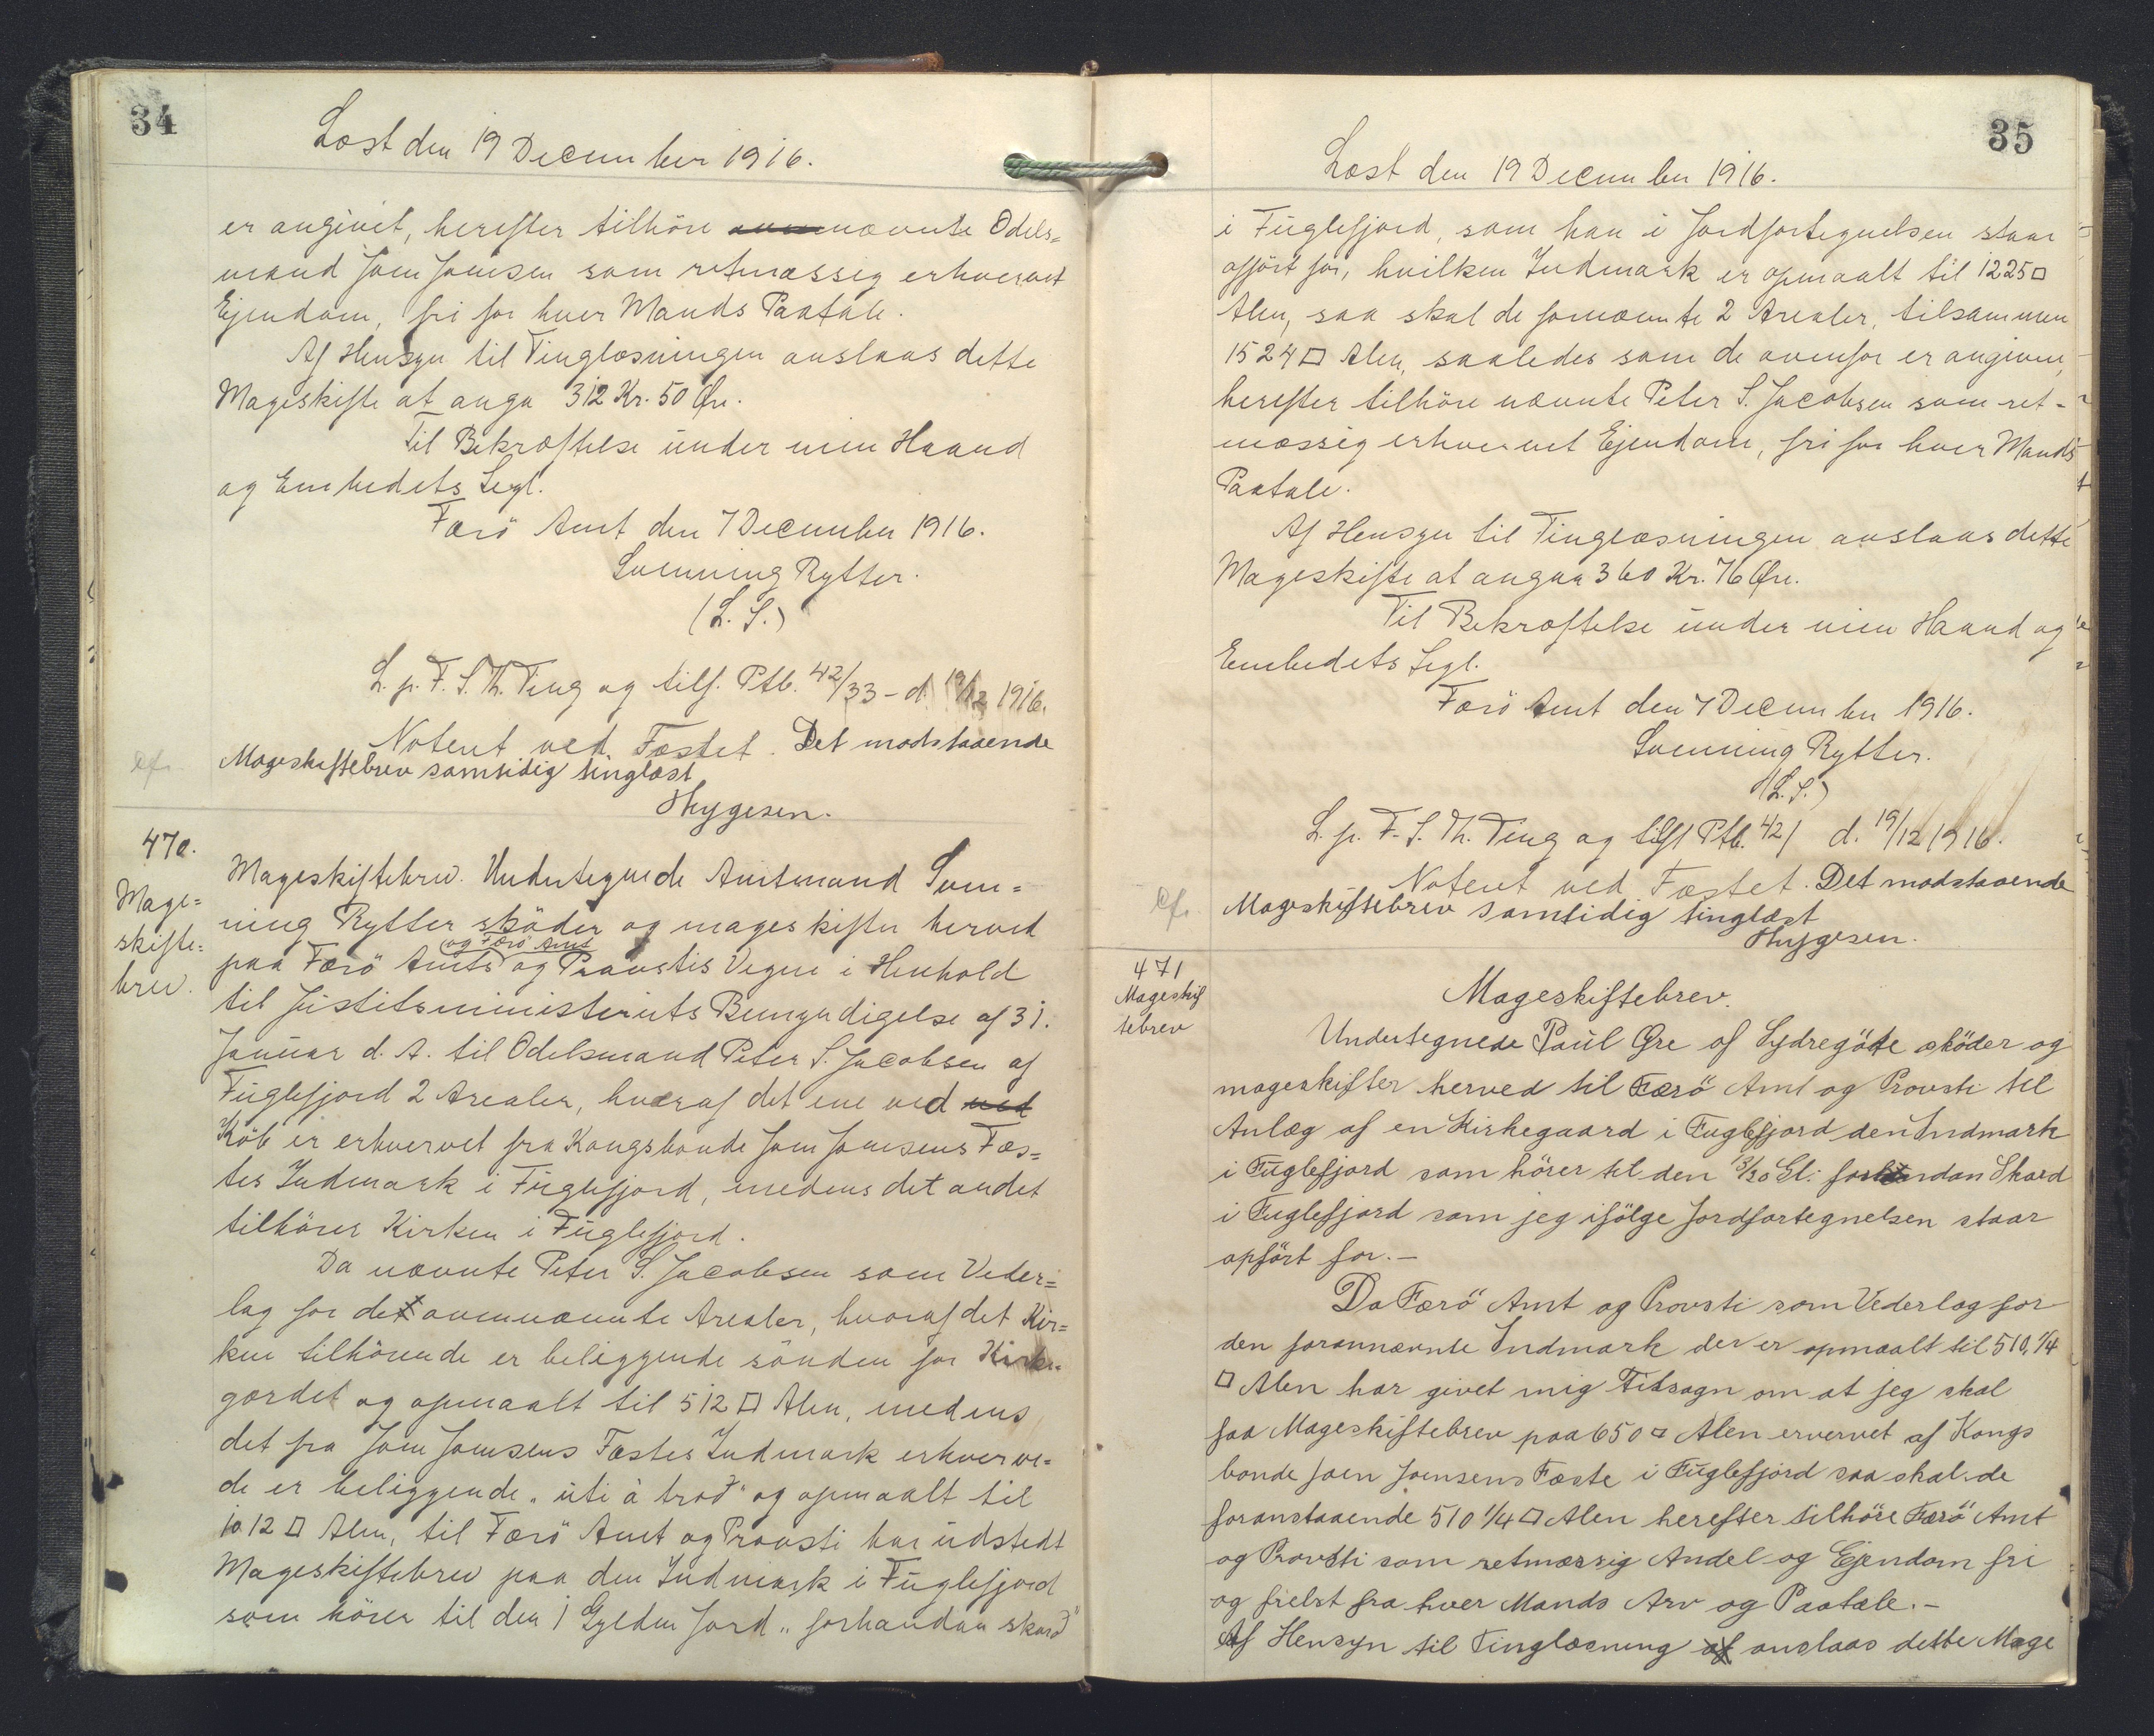 34
Læst den 19 December 1916.
er angivet, herefter tilhöre nævnte Odels=
mand Joen Joensen som retmæssig erhvervet
Ejendom, fri for hver Mands Paatale.
Af Hensyn til Tinglæsningen anslaas dette
Mageskifte at angaa 312 Kr. 50 Øre.
Til Bekræftelse under min Haand
og Embedets Segl.
Færö Amt den 7 December 1916.
Svenning Rytter.
(L. S.)
L. p. F. S. Th. Ting og tilf. Ptb. 42/33 - d. 19/12 1916.
Noteret ved Fæstet. Det modstaaende
cfr. Mageskiftebrev samtidig tinglæst
Thygesen.
470.
Mage=
skifte=
brev.
Mageskiftebrev. Undertegnede Amtmand Sven=
ning Rytter sköder og mageskifter herved
og Færö Amt
paa Færö Amts og Provstis Vegne i Henhold
til Justitsministeriets Bemyndigelse af 31.
Januar d. A. til Odelsmand Peter S. Jacobsen af
Fuglefjord 2 Arealer, hvoraf det ene ved ved
Köb er erhvervet fra Kongsbonde Joen Joensens Fæs=
tes Indmark i Fuglefjord, medens det andet
tilhörer Kirken i Fuglefjord.
Da nævnte Peter S. Jacobsen som Veder=
lag for det ovennævnte Arealer, hvoraf det Kir=
ken tilhörende er beliggende sönden for Kirke=
gærdet og opmaalt til 512 □ Alen, medens
det fra Joen Joensens Fæstes Indmark erhverve=
de er beliggende „uti à tröd" og opmaalt til
1012 □ Alen, til Færö Amt og Provsti har udstedt
Mageskiftebrev paa den Indmark i Fuglefjord
som hörer til den 1 Gylden Jord „forhandan skard"
35
Læst den 19 December 1916.
i Fuglefjord, som han i Jordfortegnelsen staar
opfört for, hvilken Indmark er opmaalt til 1225 □
Alen, saa skal de fornævnte 2 Arealer, tilsammen
1524 □ Alen, saaledes som de ovenfor er angiven,
herefter tilhöre nævnte Peter S. Jacobsen som ret-
mæssig erhvervet Ejendom, fri for hver Mands
Paatale.
Af Hensyn til Tinglæsningen anslaas dette
Mageskifte at angaa 360 Kr. 76 Øre.
Til Bekræftelse under min Haand og
Embedets Segl.
Færö Amt den 7 December 1916.
Svenning Rytter.
(L. S.)
L. p. F. S. Th. Ting og tilf Ptb. 42/ d. 19/12 1916.
Noteret ved Fæstet. Det modstaaende
cfr. Mageskiftebrev samtidig tinglæst
Thygesen.
471
Mageskif
tebrev
Mageskiftebrev.
Undertegnede Paul Øre af Sydregöte sköder og
mageskifter herved til Færö Amt og Provsti til
Anlæg af en Kirkegaard i Fuglefjord den Indmark
i Fuglefjord som hörer til den 13/20 Gl: forhandan Skard
i Fuglefjord som jeg ifölge Jordfortegnelsen staar
opfört for.-
Da Færö Amt og Provsti som Vederlag for
den forannævnte Indmark der er opmaalt til 510 1/4
□ Alen har givet mig Tilsagn om at jeg skal
faa Mageskiftebrev paa 650 □ Alen ervervet af Kongs
bonde Joen Joensens Fæste i Fuglefjord saa skal de
foranstaaende 510 1/4 □ Alen herefter tilhöre Færö Amt
og Provsti som retmæssig Andel og Ejendom fri
og frelst fra hver Mands Arv og Paatale.-
Af Hensyn til Tinglæsning af anslaas dette Mage